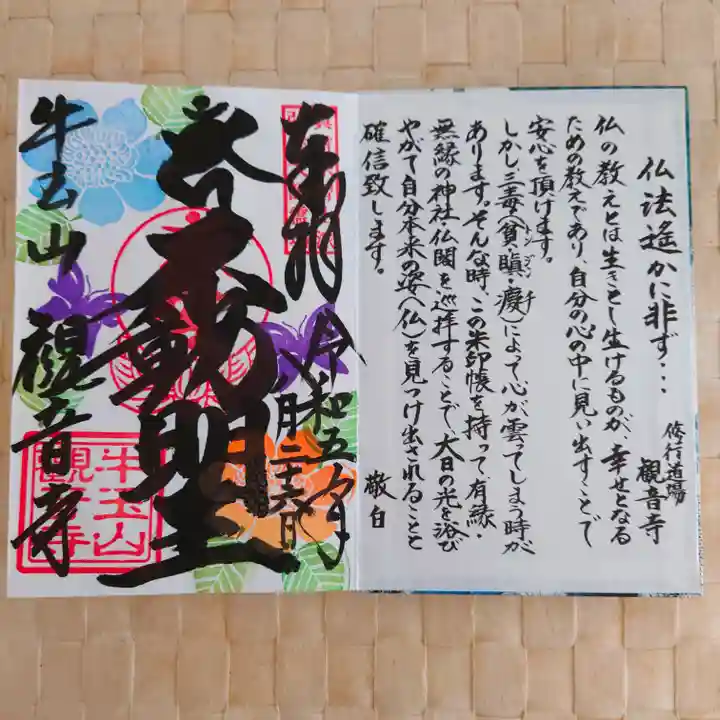 仏法遙かに非ず・・・
修行道場
観音寺
仏の教えとは生きとし生けるものが、幸せとなる
ための教えであり、自分の心の中に見い出すことで
安心を頂けます。
しかし、三毒(貪・瞋・癡)によって心が雲ってしまう時が
トン
ジン
チ
あります。そんな時、この朱印帳を持って有縁・
無縁の神社仏閣を巡拝することで、大日の光を浴び
やがて自分本来の姿(仏)を見つけ出されることと
確信致します。
敬白
奉拝
令和五年
八月二十六日
不動明王
牛玉山
観音寺
牛玉山
観音寺